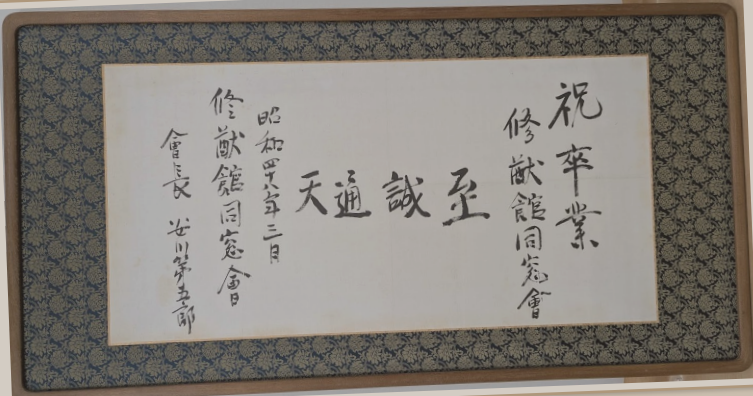 祝卒業
修猷館同窓會
至誠通天
昭和四十八年三月
修猷館同窓會
會長 安川第五郎